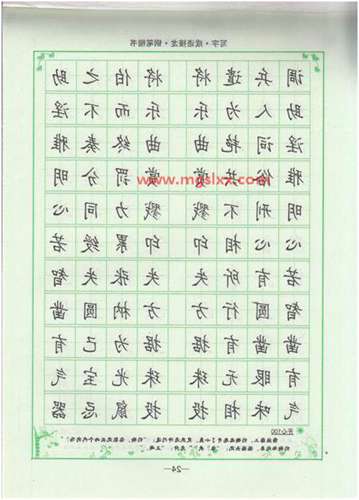 写字·成语接龙·钢笔楷书
调兵遣将将伯之助
助人为乐乐而不淫
淫词艳曲曲终奏雅
雅俗共赏赏罚分明
www.mgslxx.com
明刑不戮戮力同心
心心相印印累绶若
若有所失失张失智
智圆行方方枘圆凿
凿凿有据据为己有
有眼无珠珠光宝气
气味相投投鼠忌器
开心100
—24—